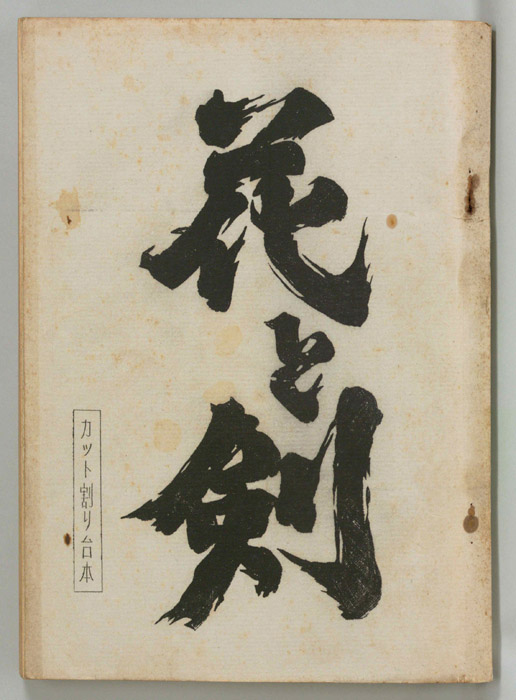 花と剣
カット割り台本